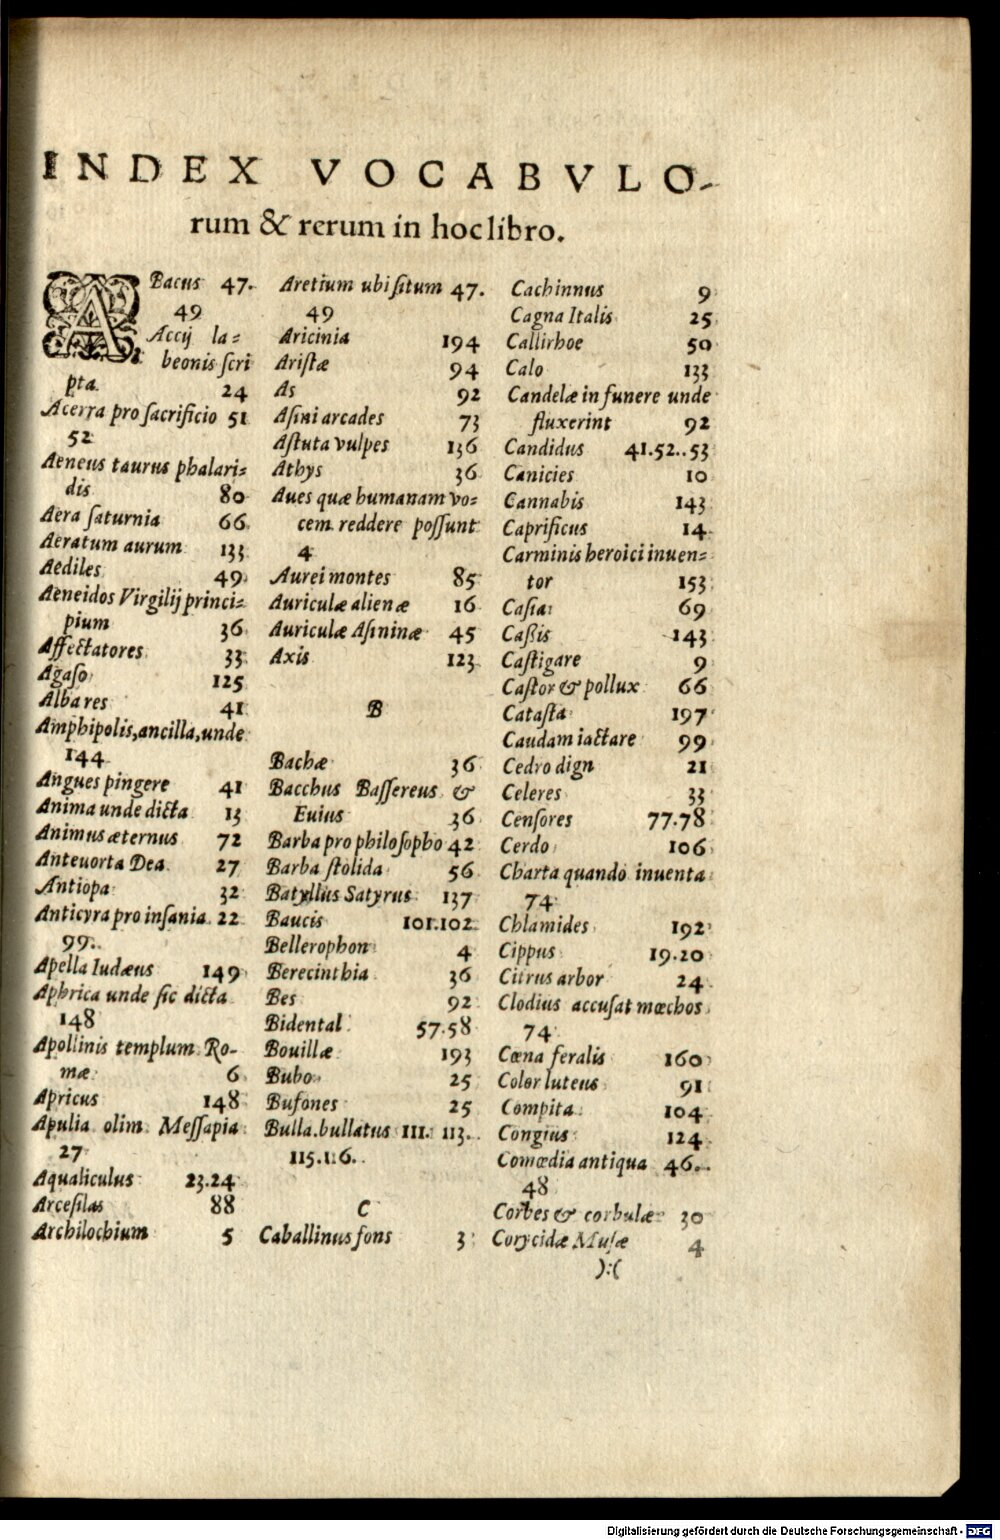 INDEX VOCABVLO-
rum & rerum in hoc libro.
ABacus 47.
49
Accij la=
beonis ſcri
pta 24
Acerra pro ſacrificio 51
52
Aeneus taurus phalari=
dis 80
Aera ſaturnia 66
Aeratum aurum 133
Aediles 49
Aeneidos Virgilij princi=
pium 36
Affectatores 33
Agaſo 125
Alba res 41
Amphipolis, ancilla, unde
144
Angues pingere 41
Anima unde dicta 13
Animus æternus 72
Anteuorta Dea 27
Antiopa 32
Anticyra pro inſania 22
99.
Apella Iudæus 149
Aphrica unde ſic dicta
148
Apollinis templum Ro-
mæ 6
Apricus 148
Apulia olim Meſſapia
27
Aqualiculus 23.24
Arceſilas 88
Archilochium 5
Aretium ubi ſitum 47.
49
Aricinia 194
Ariſtæ 94
As 92
Aſini arcades 73
Aſtuta vulpes 136
Athys 36
Aues quæ humanam vo=
cem reddere poſſunt
4
Aurei montes 85
Auriculæ alienæ 16
Auriculæ Aſininæ 45
Axis 123
B
Bachæ 36
Bacchus Baſſereus &
Euius 36
Barba pro philoſopho 42
Barba ſtolida 56
Batyllus Satyrus 137
Baucis 101.102
Bellerophon 4
Berecinthia 36
Bes 92
Bidental 57.58
Bouillæ 193
Bubo 25
Bufones 25
Bulla. bullatus 111. 113.
115.116.
C
Caballinus fons 3
Cachinnus 9
Cagna Italis 25
Callirhoe 50
Calo 133
Candelæ in funere unde
fluxerint 92
Candidus 41.52..53
Canicies 10
Cannabis 143
Caprificus 14
Carminis heroici inuen=
tor 153
Caſia 69
Caßis 143
Caſtigare 9
Caſtor & pollux 66
Cataſta 197
Caudam iactare 99
Cedro dign 21
Celeres 33
Cenſores 77.78
Cerdo 106
Charta quando inuenta
74
Chlamides 192
Cippus 19.20
Citrus arbor 24
Clodius accuſat mœchos
74
Cœna feralis 160
Color luteus 91
Compita 104
Congius 124
Comœdia antiqua 46..
48
Corbes & corbulæ 30
Corycidæ Muſæ 4
):(
Digitalisierung gefördert durch die Deutsche Forschungsgemeinschaft - DFG